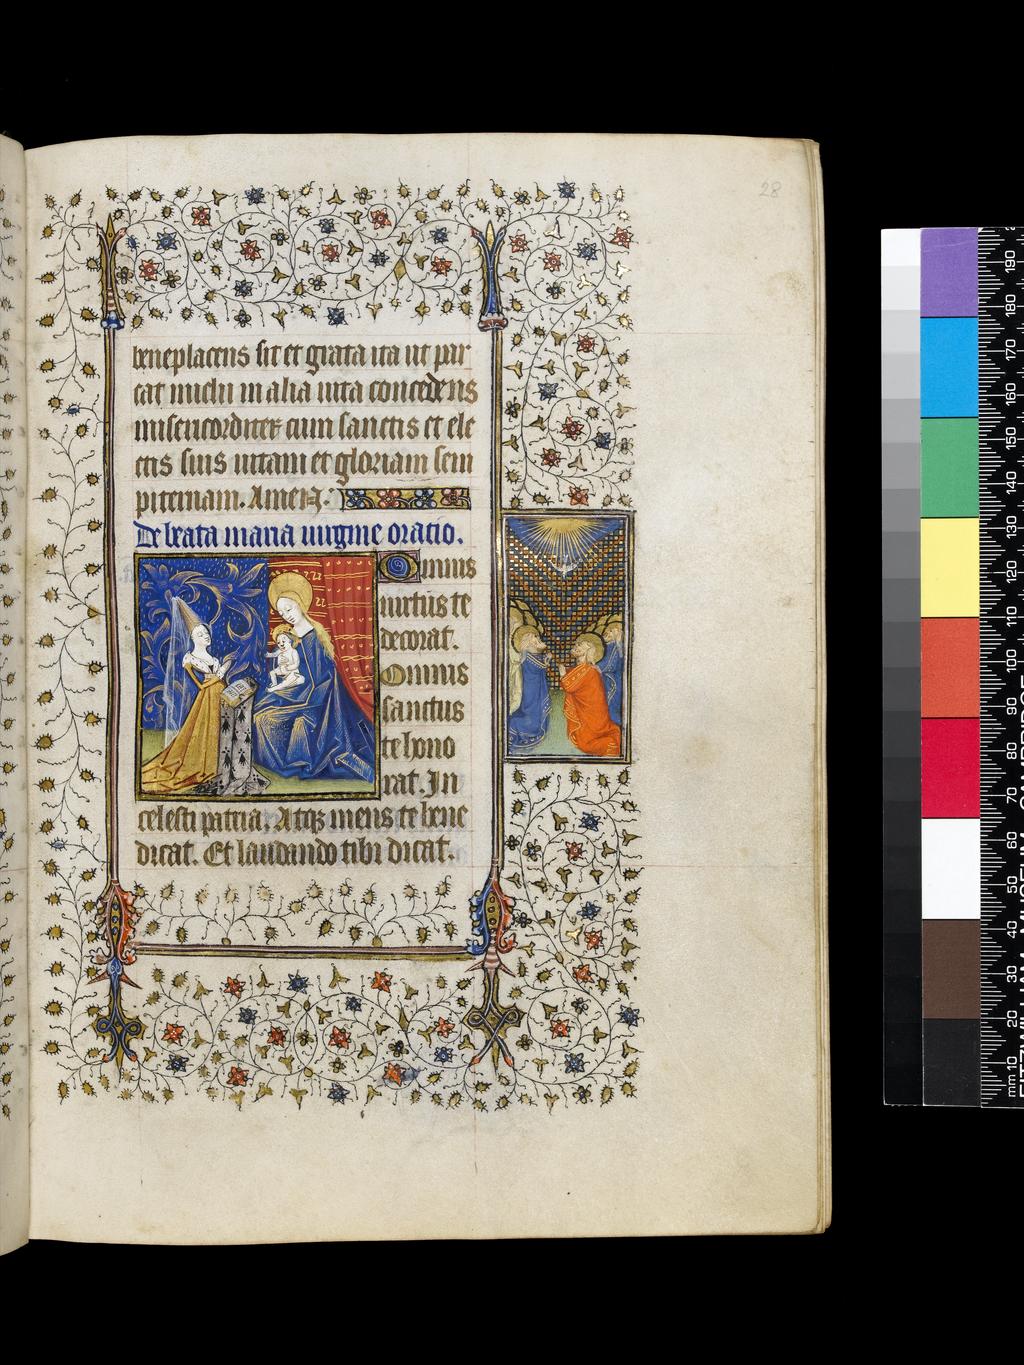 28
beneplacens sit et grata ita ut par
cat michi in alia uita concedens
misericorditer cum sanctis et ele
ctis suis uitam et gloriam sem
piternam. Amen.
De beata maria uirgine oratio.
Omnis
uirtus te
decorat.
Omnis
sanctus
te hono
rat. In
celesti patria. Atq; mens te bene
dicat. Et laudando tibi dicat.
190
180
170
160
150
140
130
120
110
100
90
80
70
60
50
40
30
20
mm 10